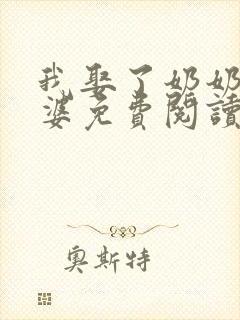 我娶了奶奶
婆免費閱讀
奧斯特